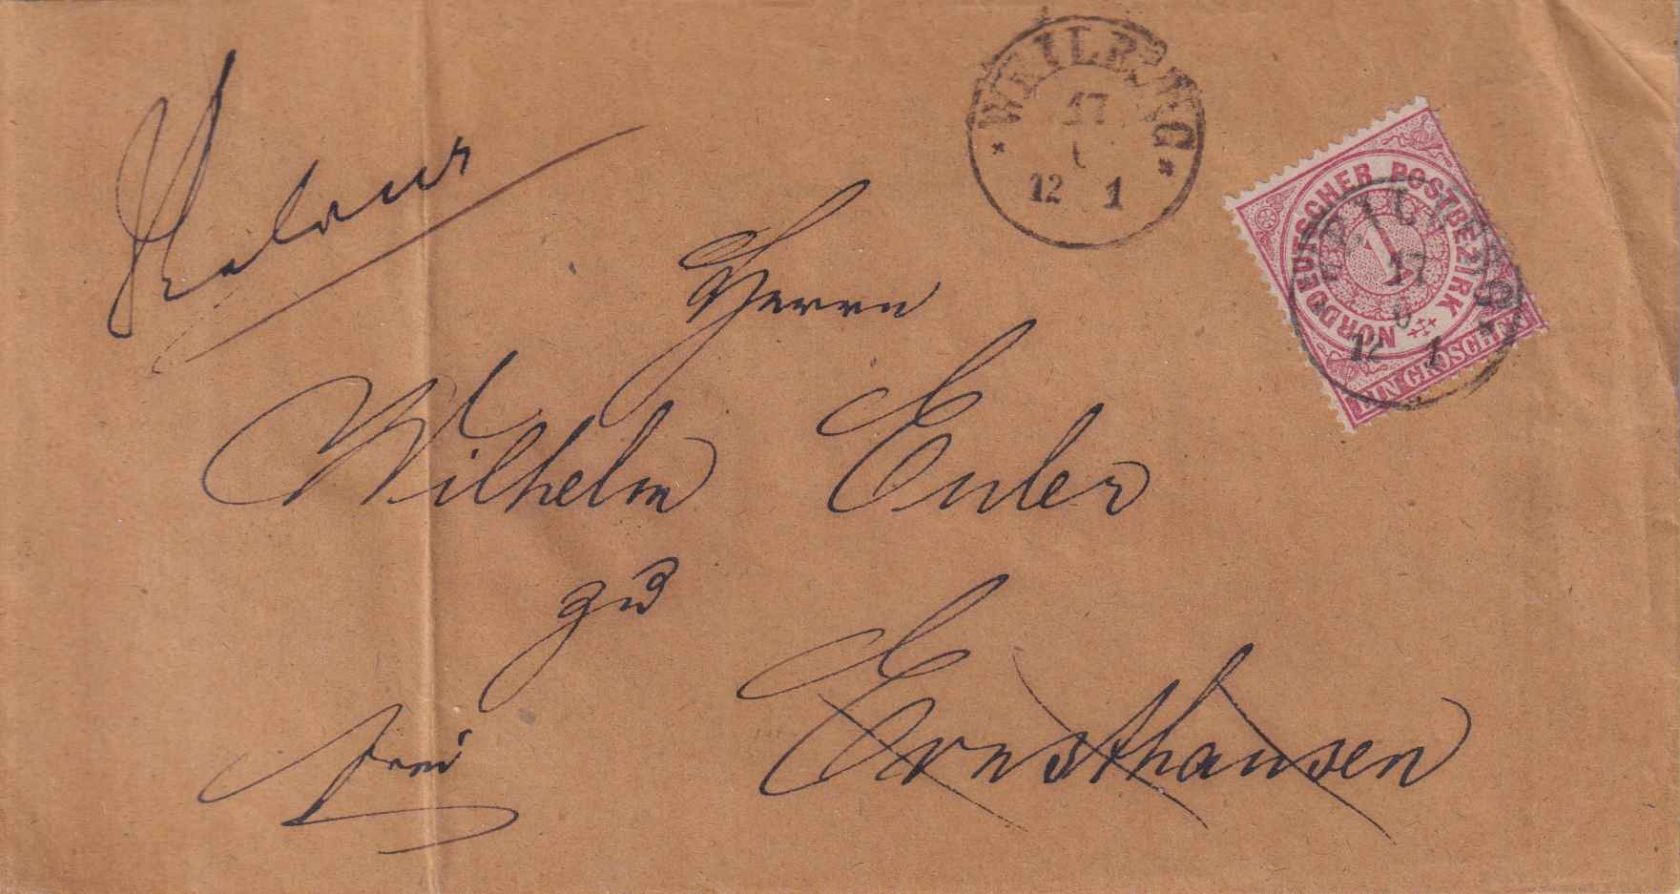 WEILBURG
17
12 1
NORDDEUTSCHER POSTBEZIRK
1
EIN GROSCHEN
WEILBURG
17
6
12 1
Herrn
Wilhelm Euler
zu
Ernsthausen
frei